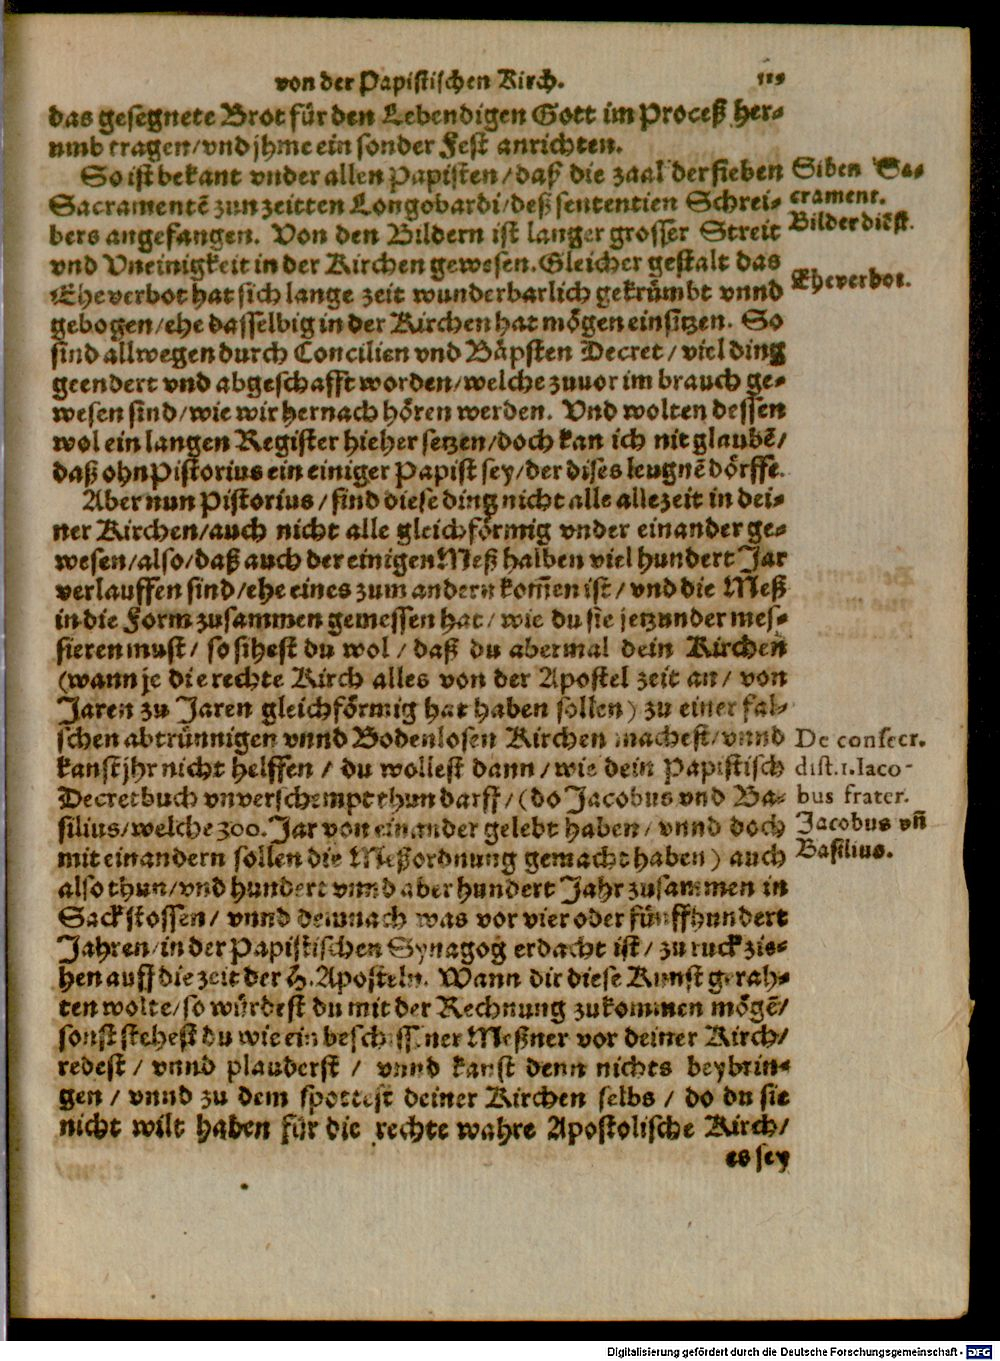 von der Papistischen Kirch. 119
das gesegnete Brot für den Lebendigen Gott im Proceß her-
umb tragen/vnd jhme ein sonder Fest anrichten.
So ist bekant vnder allen Papisten/daß die zaal der sieben
Siben Sa-
Sacramentẽ zun zeitten Longobardi/deß sententien Schrei-
crament.
bers angefangen. Von den Bildern ist langer grosser Streit
Bilderdiẽst.
vnd Vneinigkeit in der Kirchen gewesen. Gleicher gestalt das
Eheverbot hat sich lange zeit wunderbarlich gekrümbt vnnd
Eheverbot.
gebogen/ehe dasselbig in der Kirchen hat mögen einsitzen. So
sind allwegen durch Concilien vnd Bäpsten Decret/viel ding
geendert vnd abgeschafft worden/welche zuuor im brauch ge-
wesen sind/wie wir hernach hören werden. Vnd wolten dessen
wol ein langen Register hieher setzen/doch kan ich nit glaubẽ/
daß ohn Pistorius ein einiger Papist sey/der dises leugnẽ dörffe.
Aber nun Pistorius/sind diese ding nicht alle allezeit in dei-
ner Kirchen/auch nicht alle gleichförmig vnder einander ge-
wesen/also/daß auch der einigen Meß halben viel hundert Jar
verlauffen sind/ehe eines zum andern kom̃en ist/vnd die Meß
in die Form zusammen gemessen hat/wie du sie jetzunder mes-
sieren must/so sihest du wol/daß du abermal dein Kirchen
(wann je die rechte Kirch alles von der Apostel zeit an/von
Jaren zu Jaren gleichförmig hat haben sollen) zu einer fal-
schen abtrünnigen vnnd Bodenlosen Kirchen machest/vnnd
De consecr.
kanst jhr nicht helffen/du wollest dann/wie dein Papistisch
dist.1.Iaco-
Decretbuch vnverschempt thun darff/(do Jacobus vnd Ba-
bus frater.
silius/welche 300. Jar von einander gelebt haben/vnnd doch
Jacobus vñ
mit einandern sollen die Meßordnung gemacht haben) auch
Basilius.
also thun/vnd hundert vnnd aber hundert Jahr zusammen in
Sack stossen/vnnd demnach was vor vier oder fünffhundert
Jahren/in der Papistischen Synagog erdacht ist/zu ruck zie-
hen auff die zeit der H. Aposteln. Wann dir diese Kunst gerah-
ten wolte/so würdest du mit der Rechnung zukommen mögẽ/
sonst stehest du wie ein beschissener Meßner vor deiner Kirch/
redest/vnnd plauderst/vnnd kanst denn nichts beybrin-
gen/vnnd zu dem spottest deiner Kirchen selbs/do du sie
nicht wilt haben für die rechte wahre Apostolische Kirch/
es sey
Digitalisierung gefördert durch die Deutsche Forschungsgemeinschaft - DFG